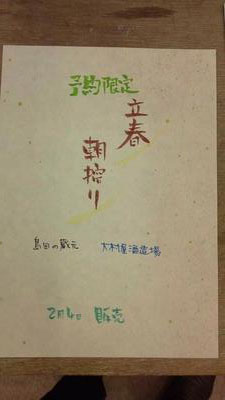 予約限定
立春
朝搾り
島田の蔵元 大村屋酒造場
2月4日 販売